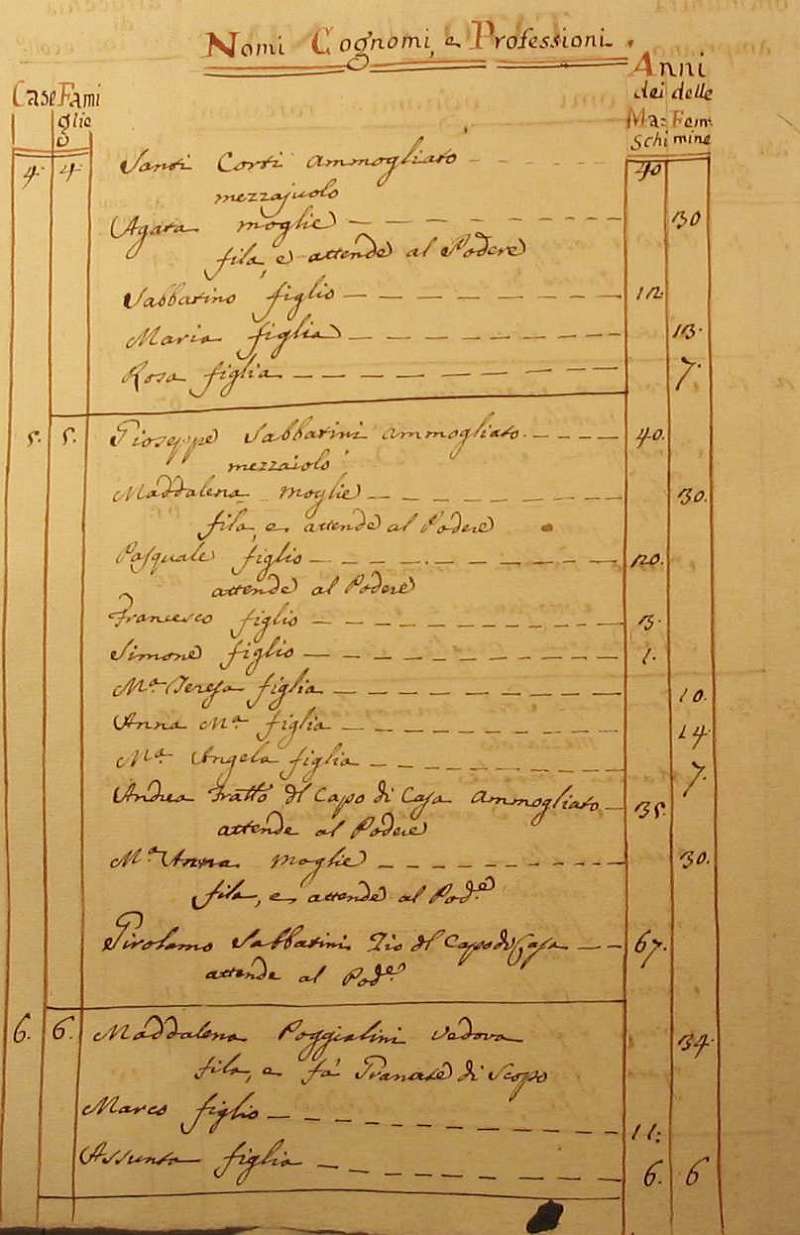 Nomi Cognomi, e Professioni.
Anni
dei delle
Case Fami
glie
Ma: Fem
schi mine
4. 4. Santi Corti Ammogliato 40
mezzajuolo
Agata moglie 30
fila, e attende al Podere
Sabbatino figlio 12
Maria figlia 13.
Rosa figlia 7.
5. 5. Gioseppe Sabbatini Ammogliato 40.
mezzaiolo
Maddalena moglie 30.
fila, e attende al Podere
Pasquale figlio 20.
attende al Podere
Francesco figlio 3.
Simone figlio 1.
Mª. Teresa figlia 10.
Anna Mª. figlia 14.
Mª. Angela figlia 7.
Andrea Fratto dl Capo di Casa Ammogliato 35.
attende al Podere
Mª. Anna moglie 30.
fila, e attende al Podᵉ.
Girolamo Sabbatini Zio dl Capo di Casa 67.
attende al Podᵉ.
6. 6. Maddalena Poggialini Vedova 34.
fila, e fà Granate di Scopo
Marco figlio 11.
Assunta figlia 6. 6